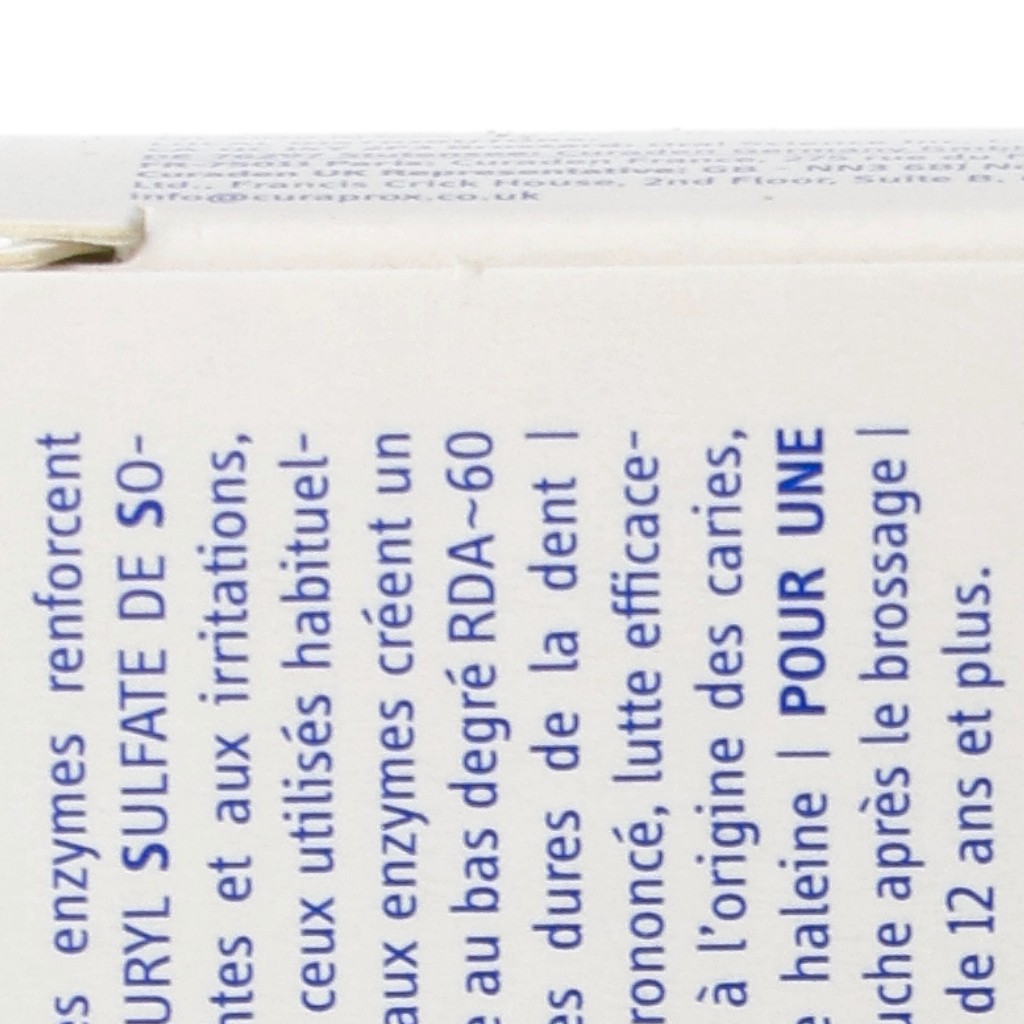 Curaden UK Representative: GB - NN3 6BJ
Ltd., Francis Crick House, 2nd Floor, Suite B,
info@curaprox.co.uk
es enzymes renforcent
URYL SULFATE DE SO-
ntes et aux irritations,
ceux utilisés habituel-
aux enzymes créent un
e au bas degré RDA~60
es dures de la dent |
rononcé, lutte efficace-
à l'origine des caries,
e haleine | POUR UNE
uche après le brossage |
de 12 ans et plus.